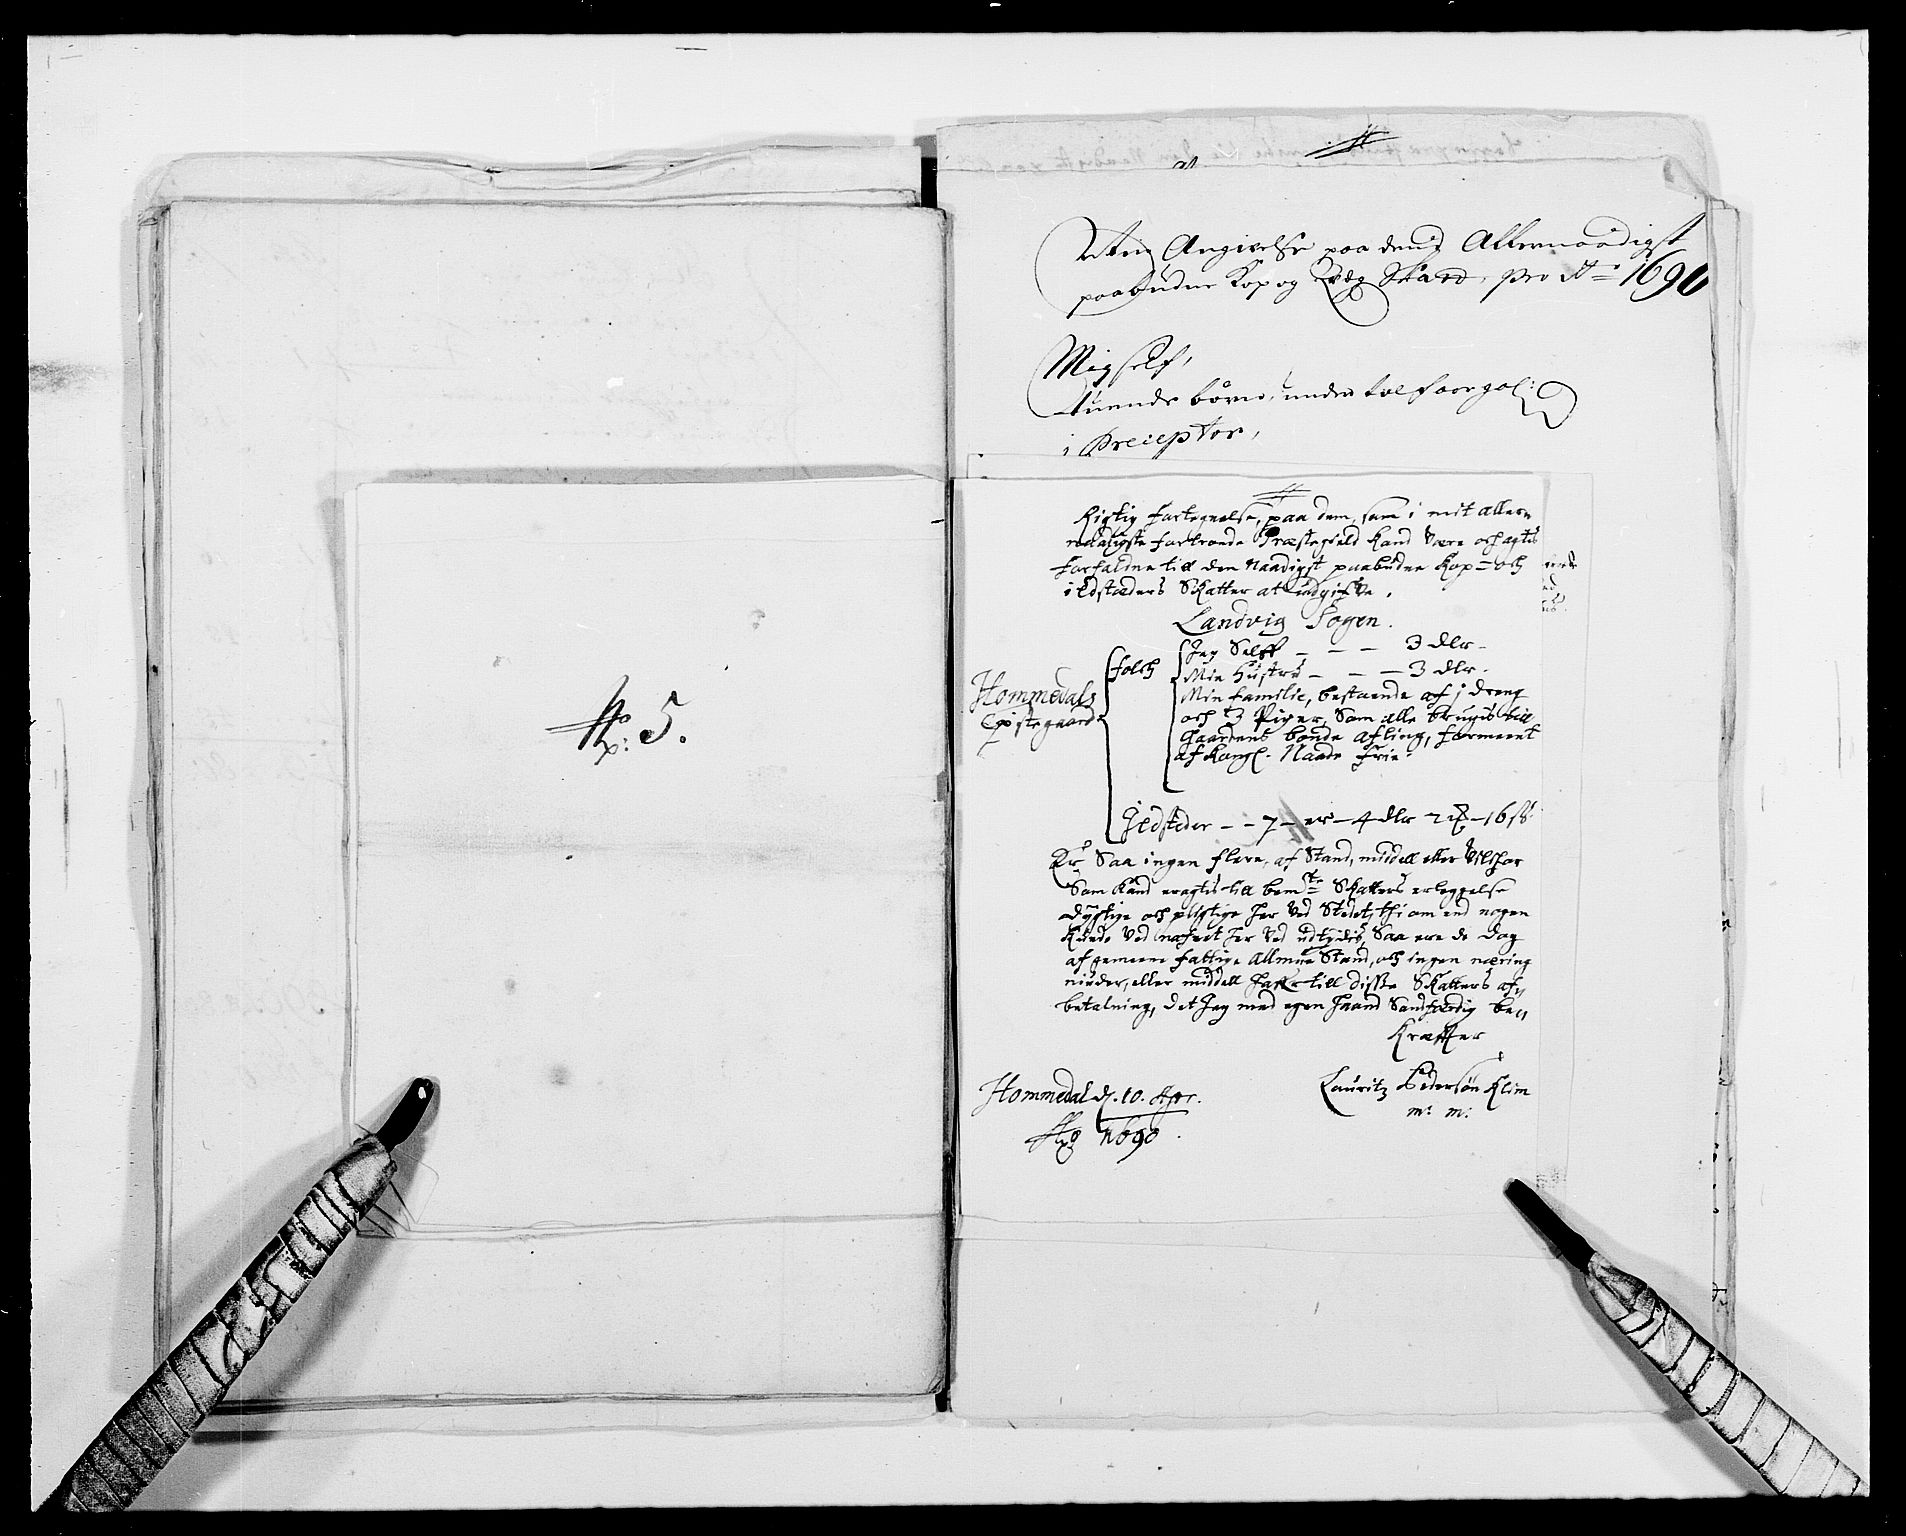 No 5.
Angivelse paa den Allernaadigst
paabudne Kop og Qvæg Skatt, pro Ao 1690
Migself,
tuende børn, under tolf aar gol:
1 Preceptor,
Rigtig Fortegnelse, paa dem, som i mit allern
naadigste fortroede Præstegield kand være och agtis
forfaldne till den Naadigst paabudne Kop- och
ildstæders Skatter at udgifve.
Landvig Sogen.
Hommedals
Folch
Jeg Self - - - 3 dlr -
Min Hustru - - - 3 dlr.
Min familie, bestaaende af 1 dreng
och 3 Piger, Som alle brugis till
Gaardens bonde afling, formeent
af Kongl. Naade Frie.
Ildsteder - - 7 - er - 4 dlr 2 - 16 s:
Er Saa ingen flere, af Stand, middell eller Vilchor
Som Kand eragtis till bemte Skatters erleggelse
dygtige och pligtige her Ved Stedet, thi om end nogen
Kunde Ved nafnet her Ved udtydis, Saa ere de dog
af gemeene fattige Allmue Stand, och ingen næring
niuder, eller middell hafver till disse Skatters af,,
betalning, det Jeg med egen Haand Sandferdig be,,
Kræffter
Hommedal d. 10. Apr.
Ao 1690.
Lauritz Pedersøn Klim
m: m: